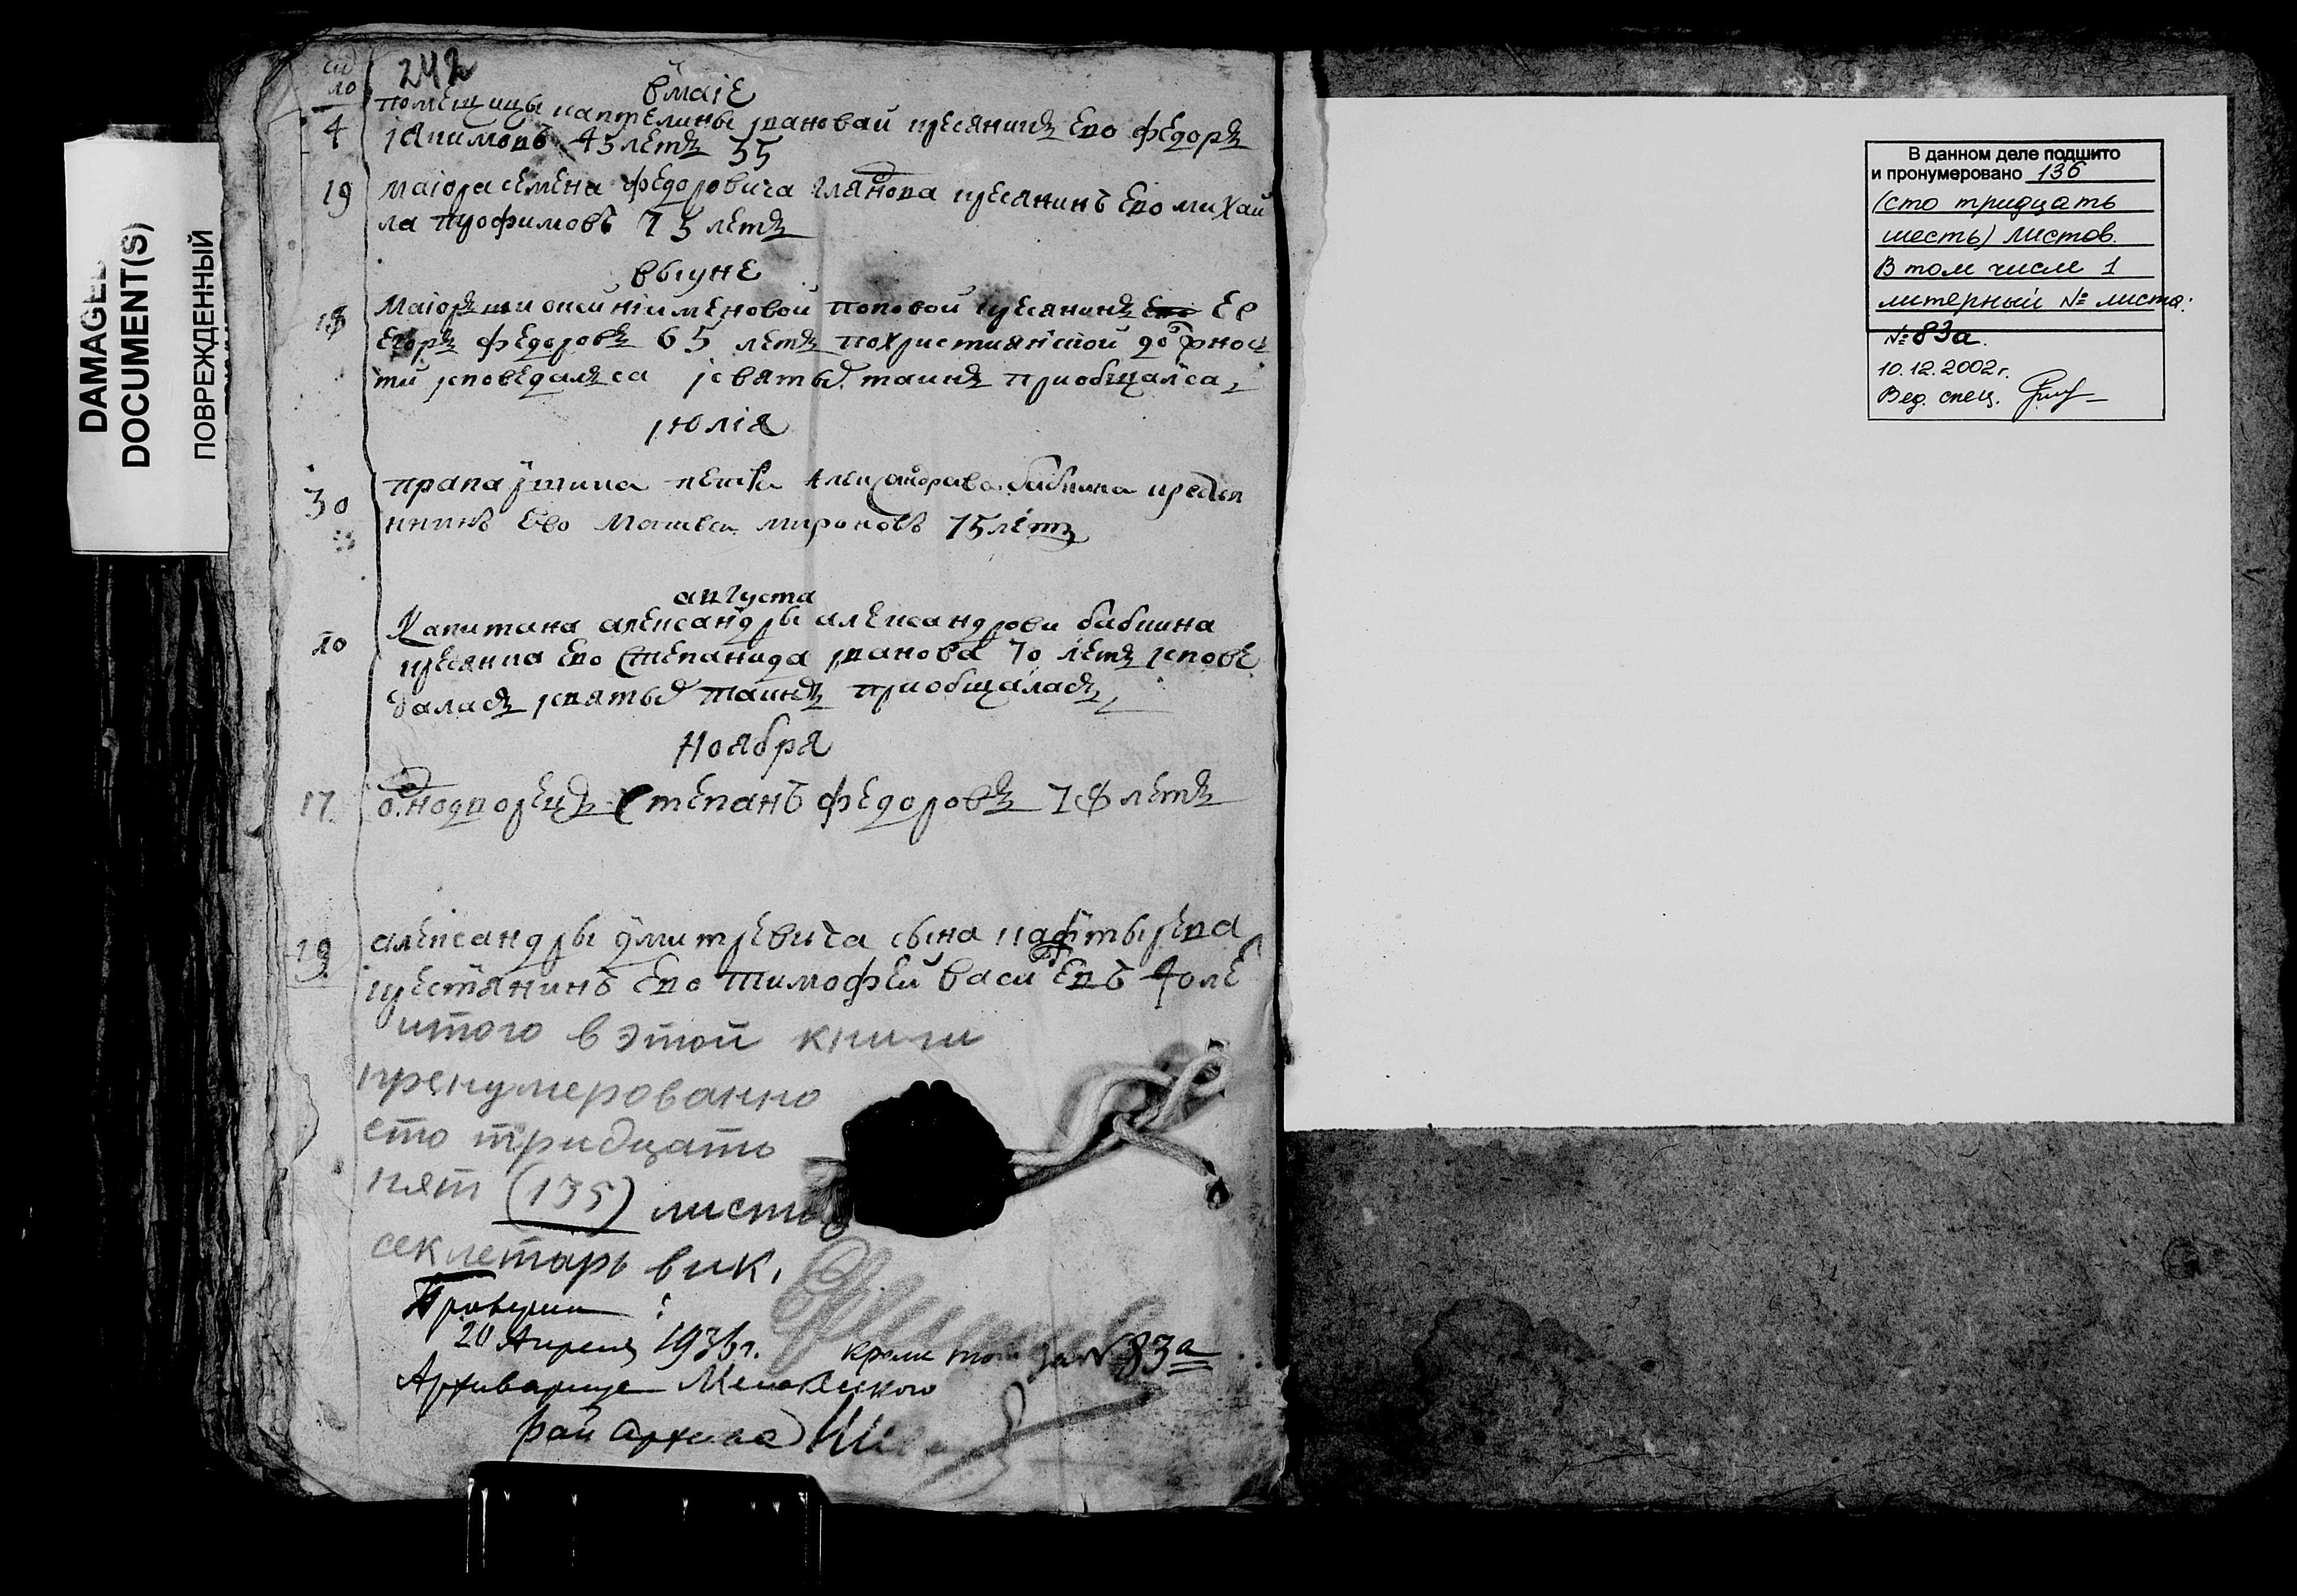 DAMAGED
DOCUMENT(S)
ПОВРЕЖДЕННЫЙ
242
вмаіе
4 помещицы иановай кресянинъ ево федоръ
45 летъ 35
19 маіора семена федоровича кресянинъ ево михаи
ла трофимовъ 75 летъ
выуне
18 маіорши поповой кресянинъ ево ее
егоръ федоровъ 65 летъ похристиянскои должнос
ти исповедался исвятыхъ таинъ приобщался
июлія
30 прапарщика александрова бабкина крестья
нинъ ево Матвеи мироновъ 75 летъ
августа
10 Капитана александры александрови бабкина
кресянка ево степанида иванова 70 летъ испове
даласъ исвятыхъ таинъ приобщаласъ
Ноября
17 однодворецъ степанъ федоровъ 78 летъ
19 александры дмитревича сына
крестянинъ ево тимофеи васильевъ 40 ле
итого в этой книги
пренумерованно
сто тридцать
пят (135) листов
секлетарь вик.
Проверил:
20 Апреля 1936 г. кроме того за № 83а
Архивариус
рай архива
В данном деле подшито
и пронумеровано 136
(сто тридцать
шесть) листов.
В том числе 1
литерный № листа:
№ 83а.
10.12.2002г.
Вед. спец.